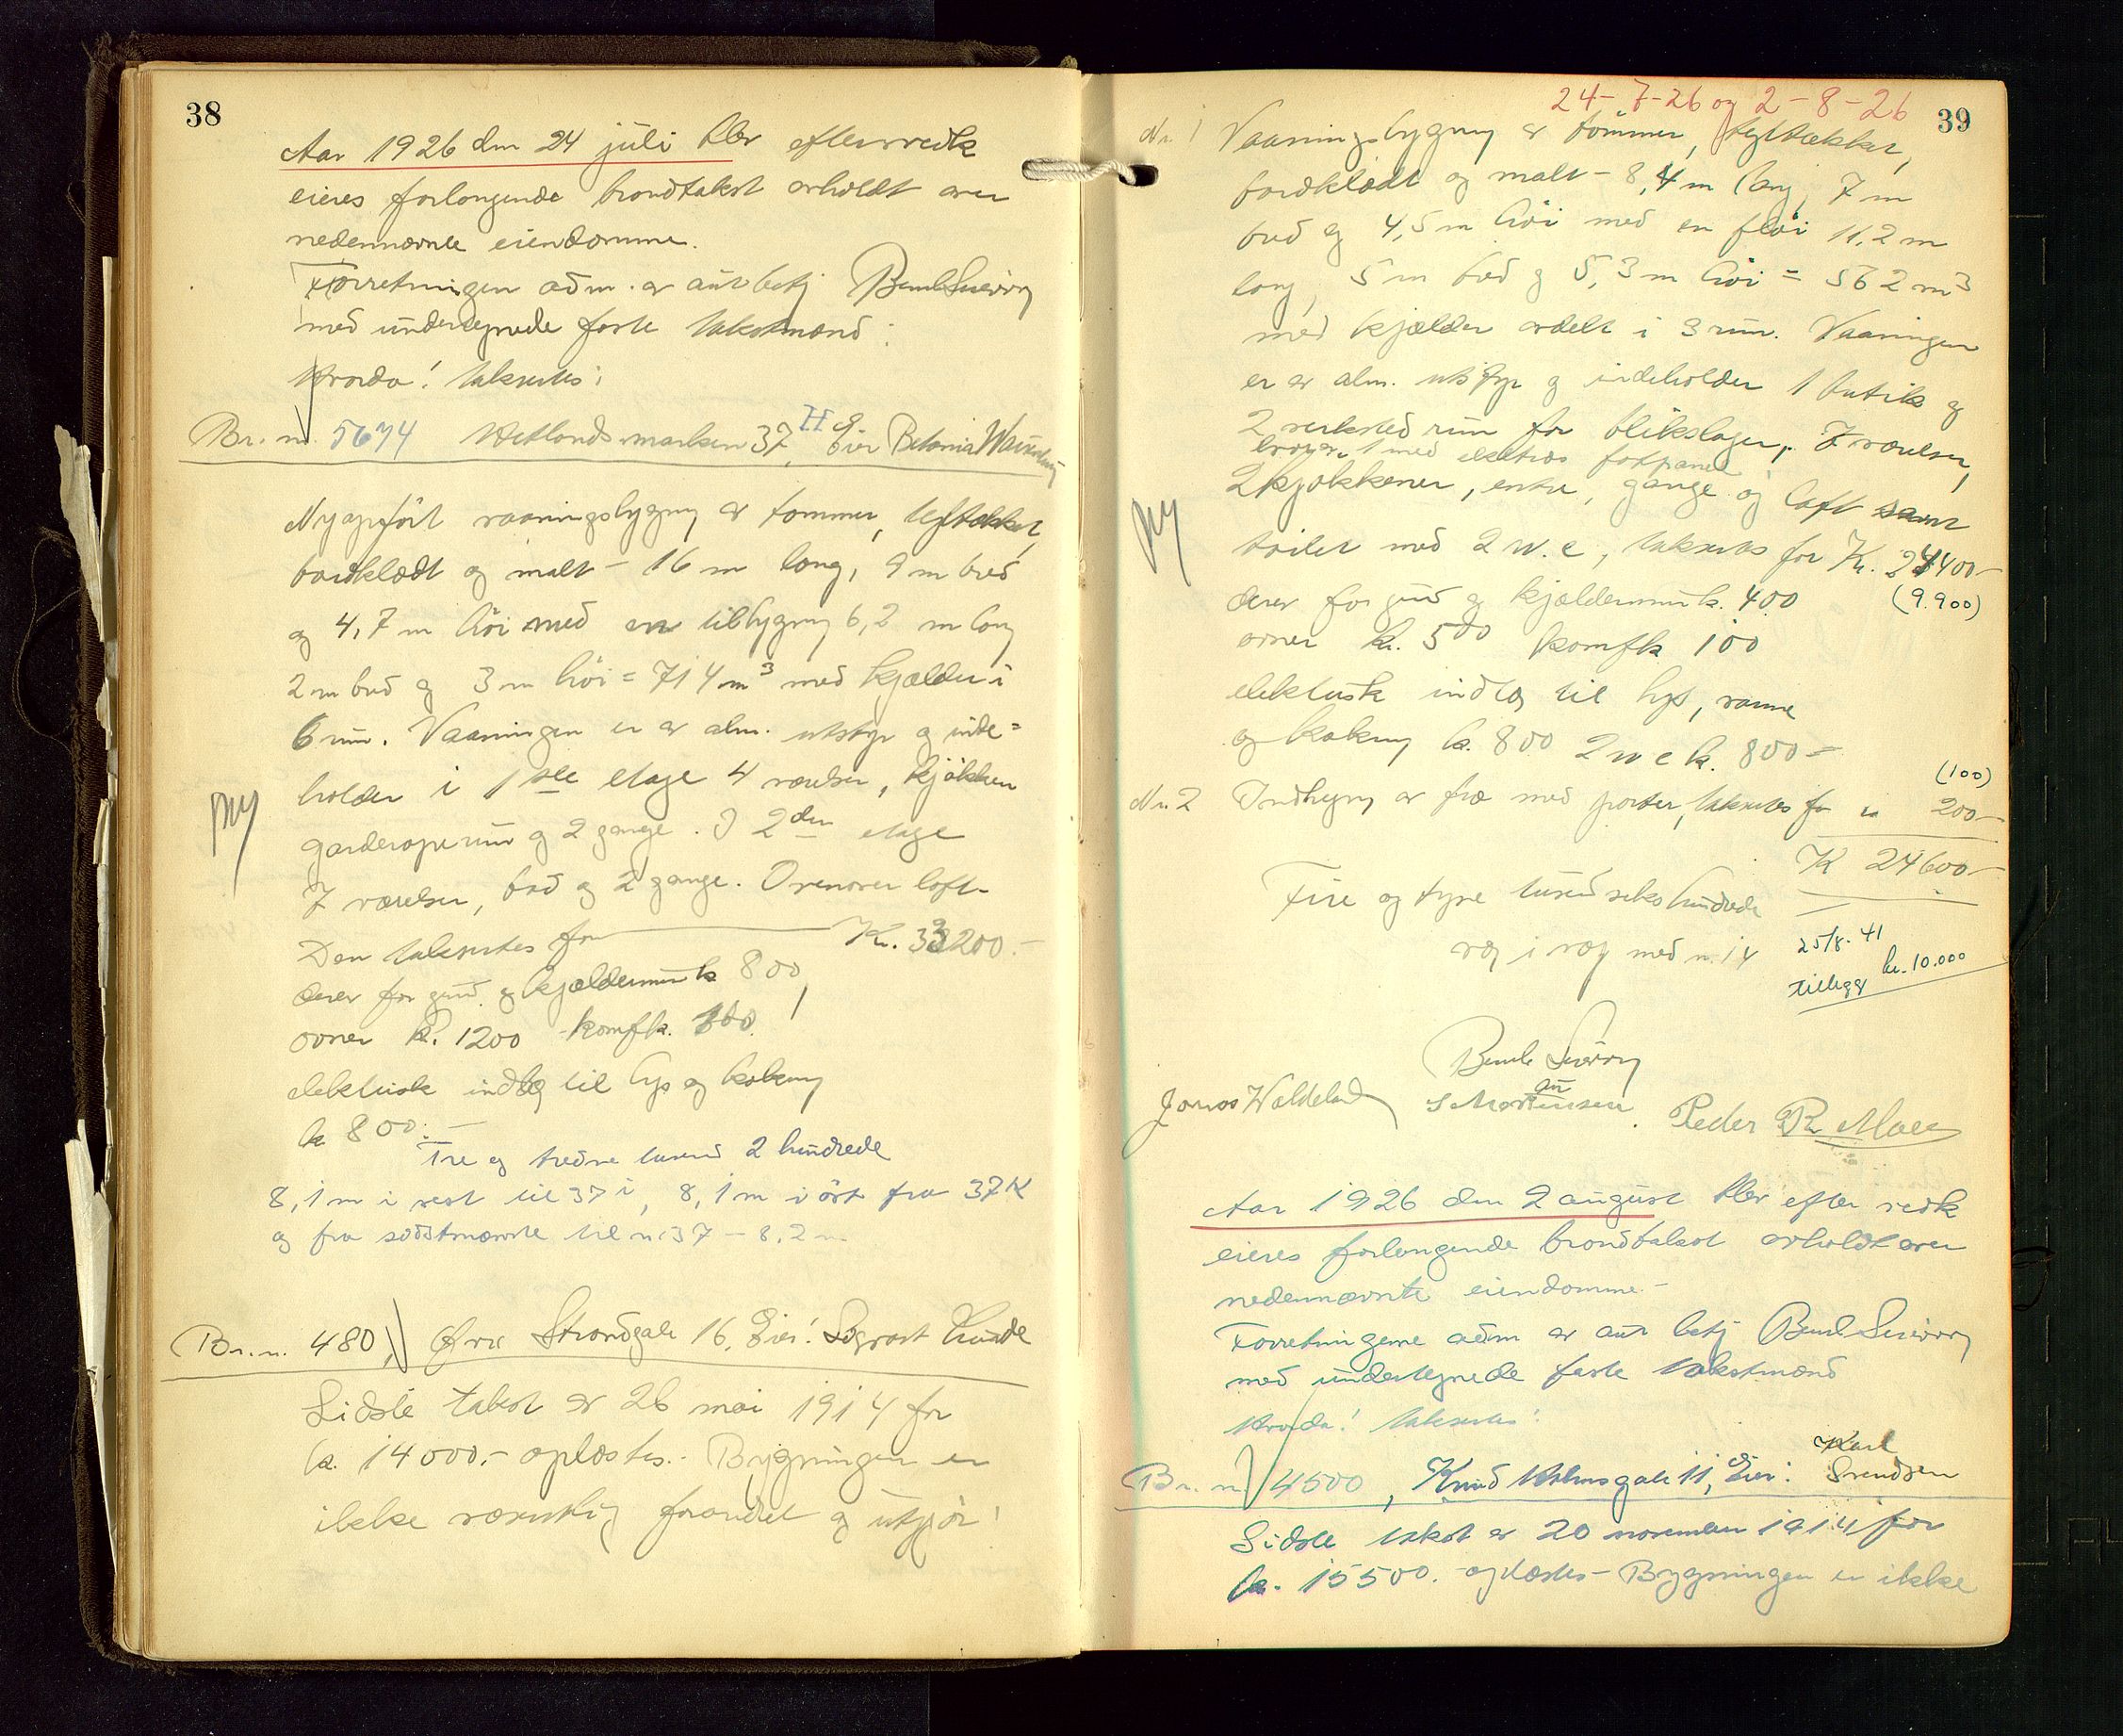 38
Aar 1926 den 24 juli blev efter vedk
eieres forlangende brandtakst avholdt over
nedennævnte eiendomme.
Forretningen adm. av aut betj
med undertegnede faste takstmænd:
Hvorda! takseres:
Br. nr. 5674 Hetlandsmarken 37 H Eier Betania
Nyopført vaaningsbygning av tømmer, teltækket,
bordklædt og malt - 16 m lang, 9 m bred
og 4,7 m høi med en tilbygning 6,2 m lang
2 m bred og 3 m høi = 714 m³ med kjælder i
6 rum. Vaaningen er av alm. utstyr og inde=
holder i 1ste etage 4 værelser, kjøkken
garderoperum og 2 gange. I 2den etage
ny
7 værelser, bad og 2 gange. Ovenover loft -
Den takseres for Kr. 33200.-
derav for grund og kjældermur k 800,
ovner k. 1200 komf k. 100.
elektrisk indlæg til lys og kokning
k 800.-
Tre og tredve tusind 2 hundrede
8,1 m i vest til 37 i, 8,1 m i øst fra 37 K
og fra sidstnævnte til nr 37 - 8,2 m
Br. nr. 480, Øvre Strandgate 16. Eier:
Sidste takst av 26 mai 1914 for
k. 14000.- oplæstes. - Bygningen er
ikke væsentlig forandret og utgjør:
24-7-26 og 2-8-26 39
Nr. 1 Vaaningsbygning av tømmer, teltækket,
bordklædt og malt - 8,4 m lang, 7 m
bred og 4,5 m høi med en fløi 11,2 m
lang, 5 m bred og 5,3 m høi = 562 m³
med kjælder avdelt i 3 rum. Vaaningen
er av alm. utstyr og indeholder 1 butik og
2 verksted rum for blikslager, 7 værelser,
hvorav 1 med elektrisk
2 kjøkkener, entre, gange og loft samt
ny
toilet med 2 w.c, takseres for Kr. 24400-
derav for grund og kjældermur k. 400 (9.900)
ovner k. 500 komf k 100
elektrisk indlæg til lys, varme
og kokning k. 800 2 w c k. 800 -
(100)
Nr. 2 Indhegning av træ med porter, takseres for " 200-
K 24600-
Fire og tyve tusind seks hundrede
væg i væg med nr. 14
25/8-41
tillegg kr. 10.000
Jonas Waldeland S Mortensen Peder R Moe
Aar 1926 den 2 august blev efter vedk
eieres forlangende brandtakst avholdt over
nedennævnte eiendomme -
Forretningene adm av aut betj
med undertegnede faste takstmænd
Hvorda! takseres:
Br. nr. 4500, Knud Holmsgate 11, Eier: Karl Svendsen
Sidste takst av 20 november 1914 for
k. 15500. oplæstes - Bygningen er ikke